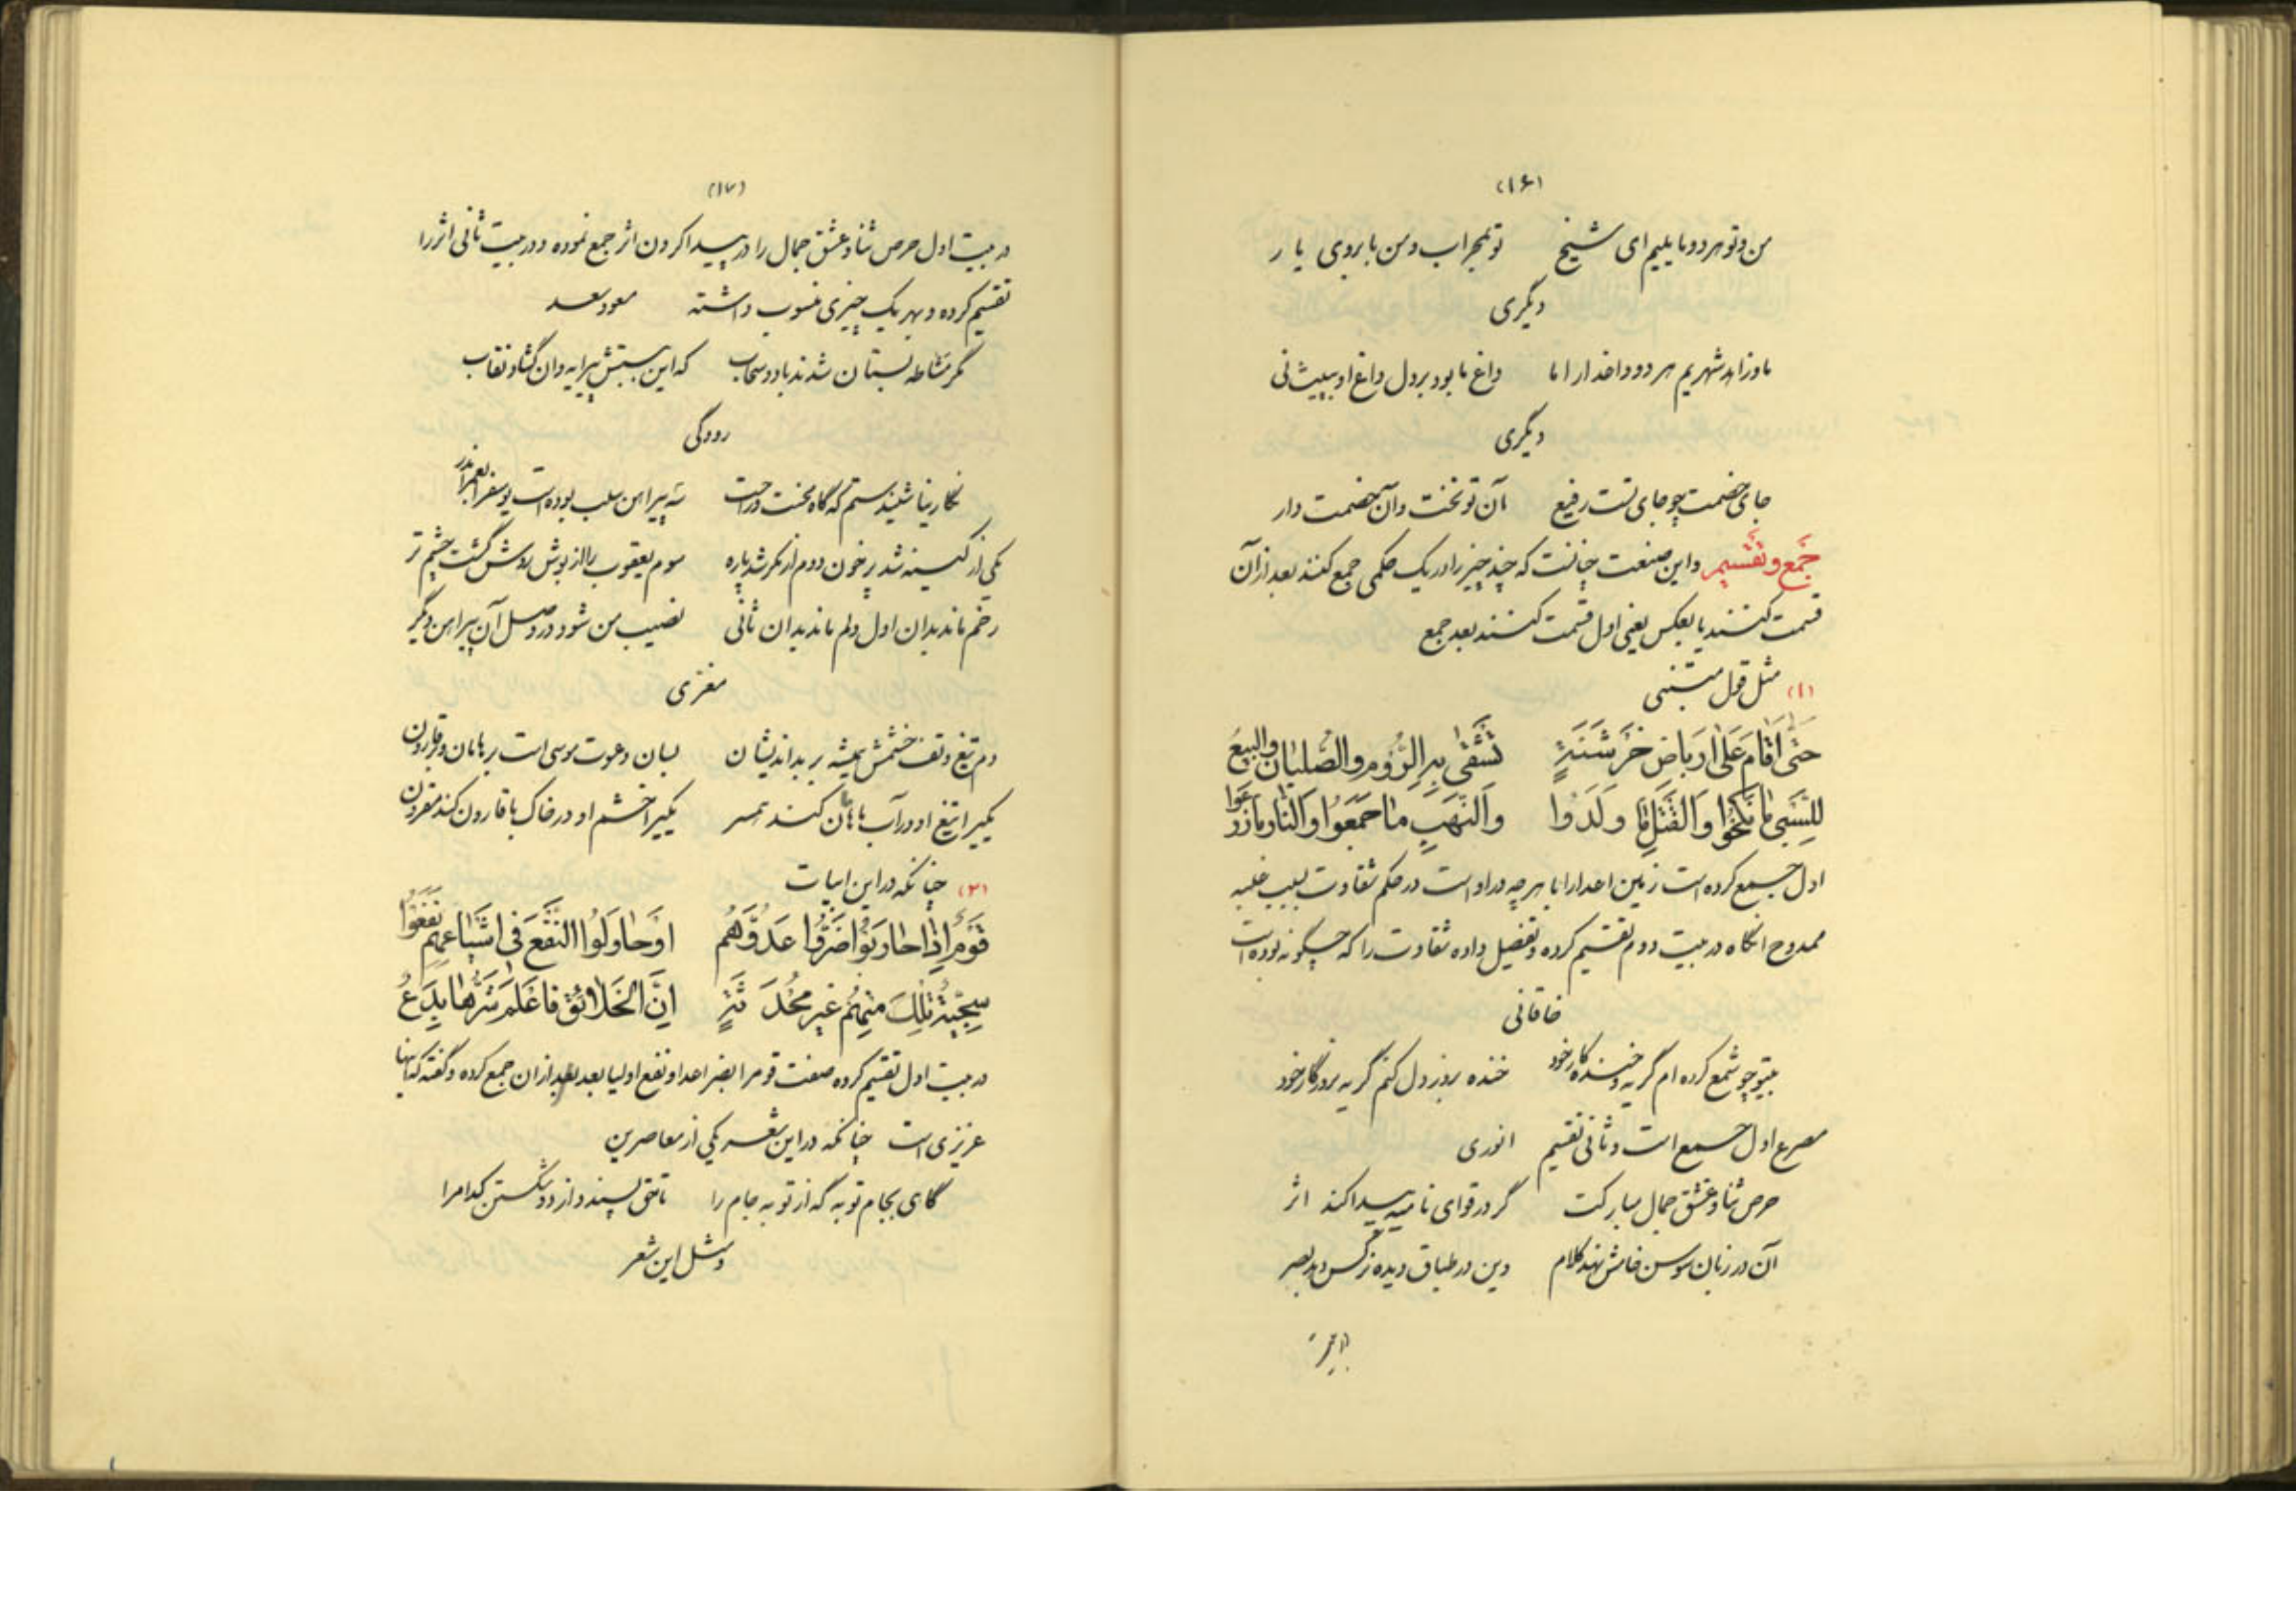 (۱۶)
من و تو هر دو مایلیم ای شیخ تو بمحراب و من بابروی یار
دیگری
ما و زاهد شهریم هر دو داغدار اما داغ ما بود بر دل داغ او به پیشانی
دیگری
جای خصمت چو جای تست رفیع آن تو تخت و آن خصمت دار
جَمع و تَقْسیم و این صنعت چنانست که چند چیز را در یک حکمی جمع کنند بعد از آن
قسمت کنند یا بعکس یعنی اول قسمت کنند بعد جمع
(۱) مثل قول متنبی
حَتّٰی اَقٰامَ عَلٰی اَربَاضِ خَرشَنَةٍ تَشْقٰی بِهِ الرُّومُ والصُّلبٰانُ والبِیَعُ
لِلسَّبیِ مٰا نَکَحُوا وَالقَتلِ مٰا وَلَدُوا وَالنَّهَبِ مٰا جَمَعُوا وَالنّٰارِ مٰا زَرَعُوا
اول جمع کرده است زمین اعدا را با هر چه در او است در حکم شقاوت بسبب غلبه
ممدوح آنگاه در بیت دوم تقسیم کرده و تفصیل داده شقاوت را که چگونه بوده است
خاقانی
بیتو چو شمع کرده ام گریه و خنده کار خود خنده بروز دل کنم گریه بروزگار خود
مصرع اول جمع است و ثانی تقسیم انوری
حرص ثنا و عشق جمال مبارکت گر در قوای نامیه پیدا کند اثر
آن در زبان سوسن خامش نهد کلام وین در طباق دیده نرگس دهد بصر
(۱۷)
در بیت اول حرص ثنا و عشق جمال را در پیدا کردن اثر جمع نموده و در بیت ثانی اثر را
تقسیم کرده و بهر یک چیزی منسوب داشته مسعود سعد
مگر مشاطه بستان شدند باد و سحاب که این ببستش پیرایه وان گشاد نقاب
رودکی
نگارینا شنیدستم که گاه محنت و راحت سه پیراهن سلب بوده است یوسف را بعمر اندر
یکی از کینه شد پر خون دوم از مکر شد پاره سوم یعقوب را از بوش روشن گشت چشم تر
رخم ماند بدان اول دلم ماند بدان ثانی نصیب من شود در وصل آن پیراهن دیگر
معزی
دم تیغ و تف خشمش همیشه بر بداندیشان بسان دعوت موسی است بر هامان و قارون
یکیرا تیغ او در آب با هامان کند همسر یکیرا خشم او در خاک با قارون کند مقرون
(۲) چنانکه در این ابیات
قَومٌ اِذٰا حٰارَبُوا ضَرُّوا عَدُوَّهُم اَوحٰاوَلُوا النَّفعَ فی اَشیٰاعِهِم نَفَعُوا
سَجِیَّةٌ تِلکَ مِنهُم غَیرُ مُحدَثَةٍ اِنَّ الخَلائِقَ فَاعلَم شَرُّهٰا بِدَعُ
در بیت اول تقسیم کرده صفت قوم را بضر اعدا و نفع اولیا بعد از ان جمع کرده و گفته که اینها
غریزی است چنانکه در این شعر یکی از معاصرین
گاهی بجام توبه گه از توبه جام را تا حق پسندد از دو شکستن کدام را
و مثل این شعر